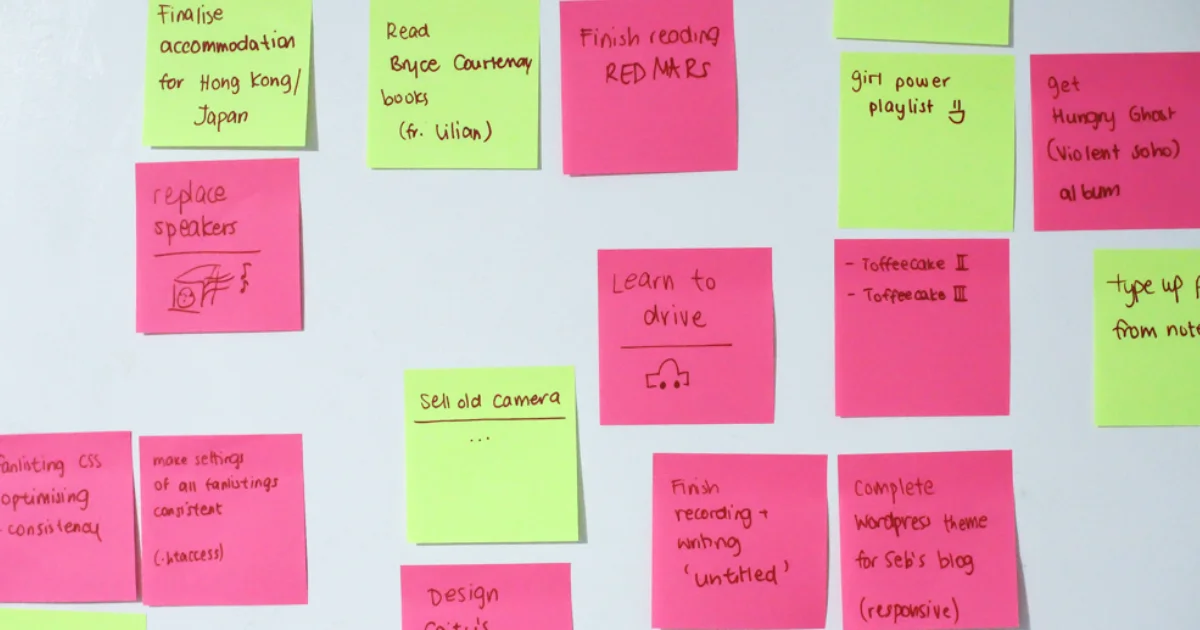 Finalise
accommodation
for Hong Kong/
Japan
Read
Bryce Courtenay
books
(fr. Lilian)
Finish reading
RED MARS
girl power
playlist
get
Hungry Ghost
(Violent Soho)
album
replace
speakers
Learn to
drive
- Toffeecake II
- Toffeecake III
type up
from note
Sell old camera
...
fanlisting CSS
optimising
- consistency
make settings
of all fanlistings
consistent
(.htaccess)
Finish
recording +
writing
'untitled'
Complete
Wordpress theme
for Seb's blog
(responsive)
Design